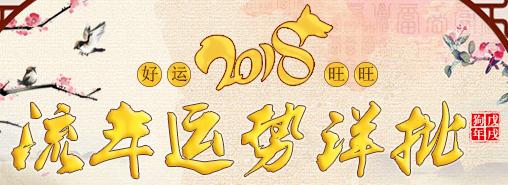 好运2018旺旺
流年运势详批
戊戌
狗年